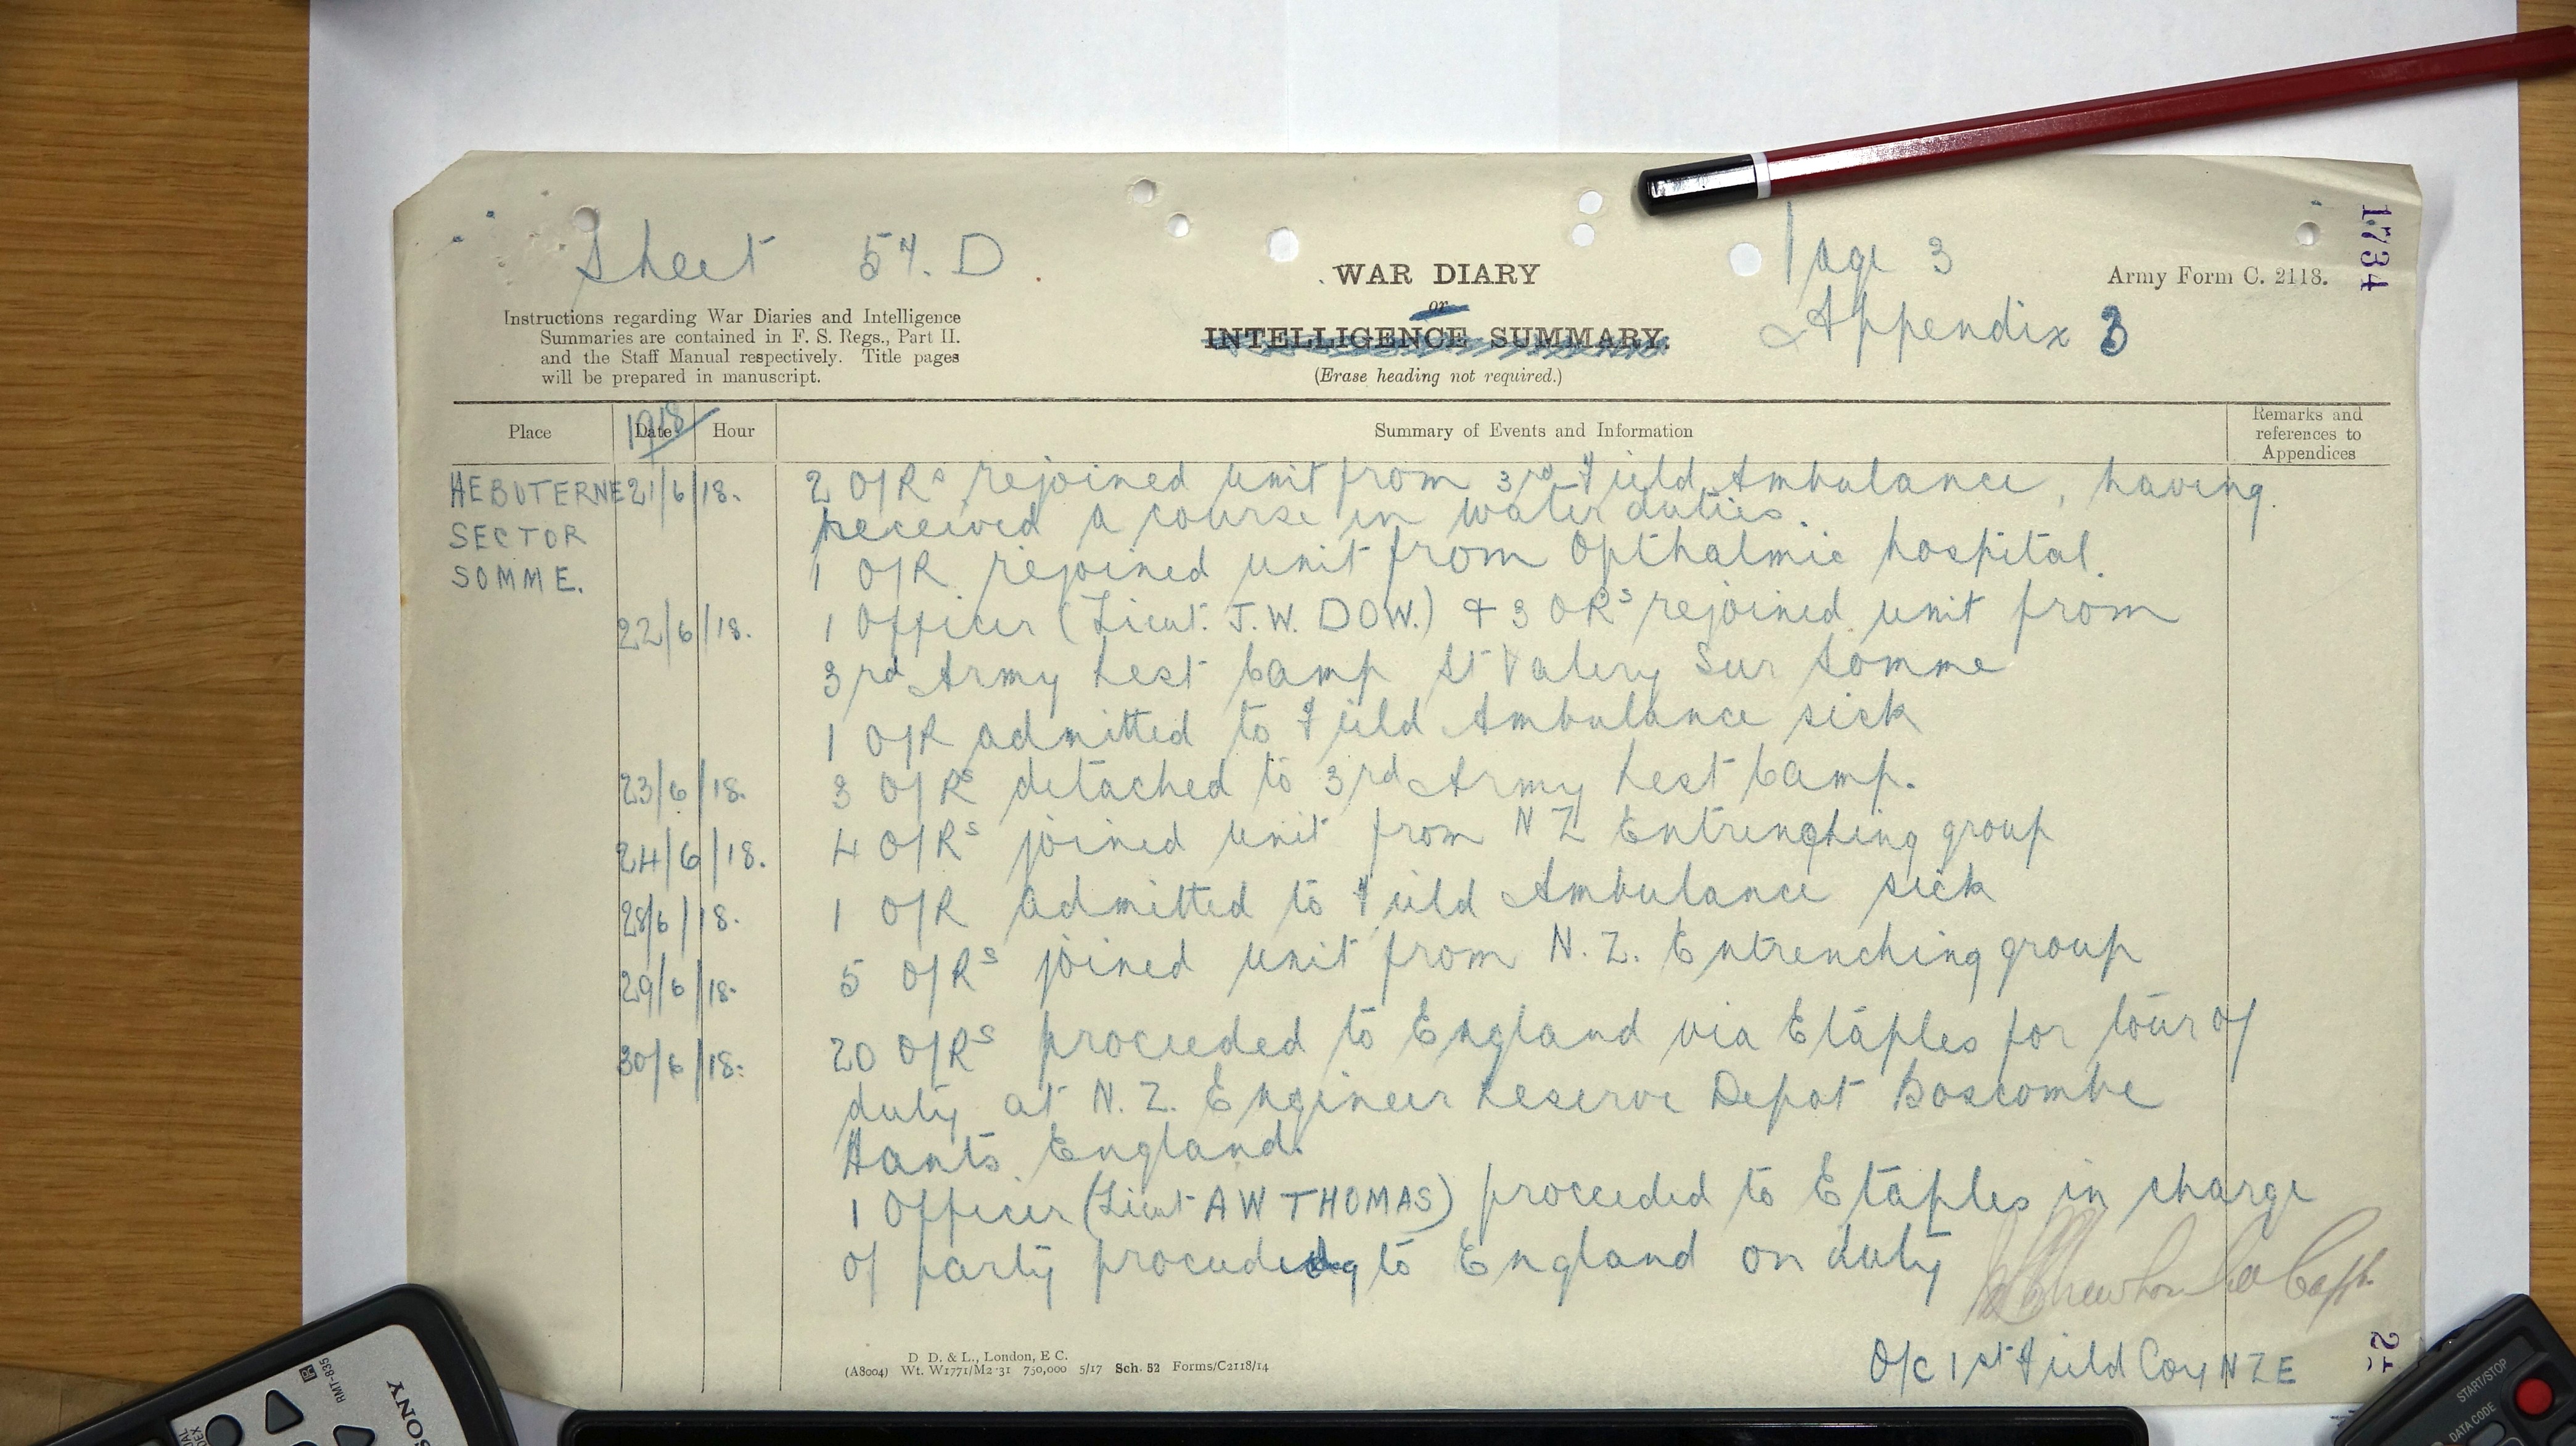 Sheet 57. D
Page 3
Appendix 3
Army Form C. 2118.
1734
WAR DIARY
or
INTELLIGENCE SUMMARY.
(Erase heading not required.)
Instructions regarding War Diaries and Intelligence
Summaries are contained in F. S. Regs., Part II.
and the Staff Manual respectively. Title pages
will be prepared in manuscript.
Place Date Hour Summary of Events and Information Remarks and references to Appendices
1918
HEBUTERNE 21/6/18. 2 O/Rs rejoined unit from 3rd Field Ambulance, having
SECTOR received a course in water duties.
SOMME. 1 O/R rejoined unit from Opthalmic hospital.
22/6/18. 1 Officer (Lieut. J.W. DOW.) + 3 ORs rejoined unit from
3rd Army Rest Camp St Valery Sur Somme
1 O/R admitted to Field Ambulance sick
23/6/18. 3 O/Rs detached to 3rd Army Rest Camp.
24/6/18. 4 O/Rs joined unit from N Z Entrenching group
28/6/18. 1 O/R admitted to Field Ambulance sick
29/6/18. 5 O/Rs joined unit from N. Z. Entrenching group
30/6/18. 20 O/Rs proceeded to England via Etaples for tour of
duty at N. Z. Engineer Reserve Depot Boscombe
Hants England.
1 Officer (Lieut A W THOMAS) proceeded to Etaples in charge
of party proceeding to England on duty
Capt.
O/C 1st Field Coy N Z E
D D. & L., London, E C.
(A8004) Wt. W1771/M2 31 750,000 5/17 Sch. 52 Forms/C2118/14
SONY
RMT-835
START/STOP
DATA CODE